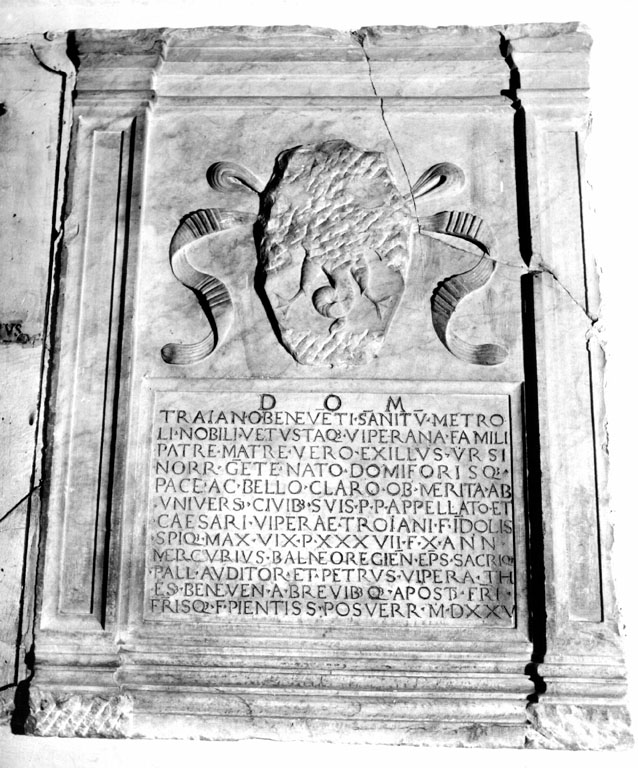 D O M
TRAIANO·BENEVETI·SANITV̄·METRO
LI·NOBILI·VETVSTAQ·VIPERANA·FAMILI
PATRE·MATRE·VERO·EXILLVS·VRSI
NORR·GETE·NATO·DOMI·FORISQ·
PACE·AC·BELLO·CLARO·OB·MERITA·AB
VNIVERS·CIVIB·SVIS·P·P·APPELLATO·ET
CAESARI·VIPERAE·TROIANI·F·IDOLIS
SPIQ·MAX·VIX·P·XXXVII·F·X·ANN
MERCVRIVS·BALNEOREGIEN̄·EPS·SACRIQ
PALL·AVDITOR·ET·PETRVS·VIPERA·TH
ES·BENEVEN·A·BREVIBQ·APOST·FRI·
FRISQ·F·PIENTISS·POSVERR·M·DXXV
VS